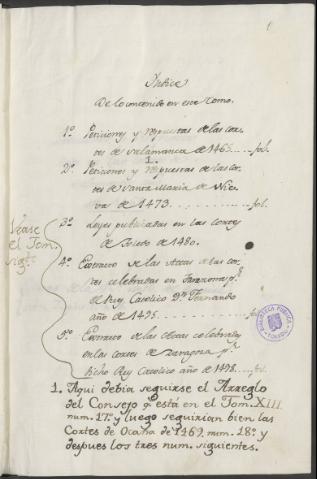 1
Indice
De lo contenido en este tomo.
1º. Peticiones y respuestas de las cor-
tes de Salamanca de 1465.....fol.
2º. Peticiones y respuestas de las cor-
1.
tes de Santa Maria de Nie-
va de 1473.........fol.
3º. Leyes publicadas en las cortes
de Toledo de 1480.
4º. Extracto de las Actas de las cor-
tes celebradas en Tarazona pr. el
Rey Catolico Dn. Fernando
año de 1495.......fol
5º. Extracto de las Actas celebradas
en las cortes de Zaragoza pr.
dicho Rey Catolico año de 1498....fol.
Vease
el Tom.
sigte.
BIBLIOTECA PUBLICA
TOLEDO
1. Aqui debia seguirse el Arreglo
del Consejo q. está en el Tom. XIII
num. 17. y luego seguirian bien las
Cortes de Ocaña de 1469. num. 18º. y
despues los tres num. siguientes.